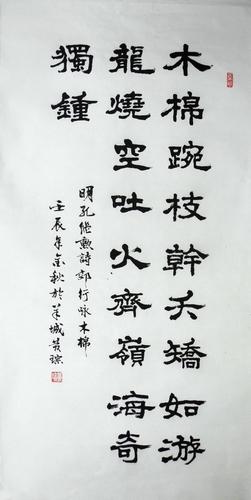 木棉踠枝幹夭矯如游
龍燒空吐火齊嶺海奇
獨鍾
明孔継勲詩郊行咏木棉
壬辰年金秋於羊城